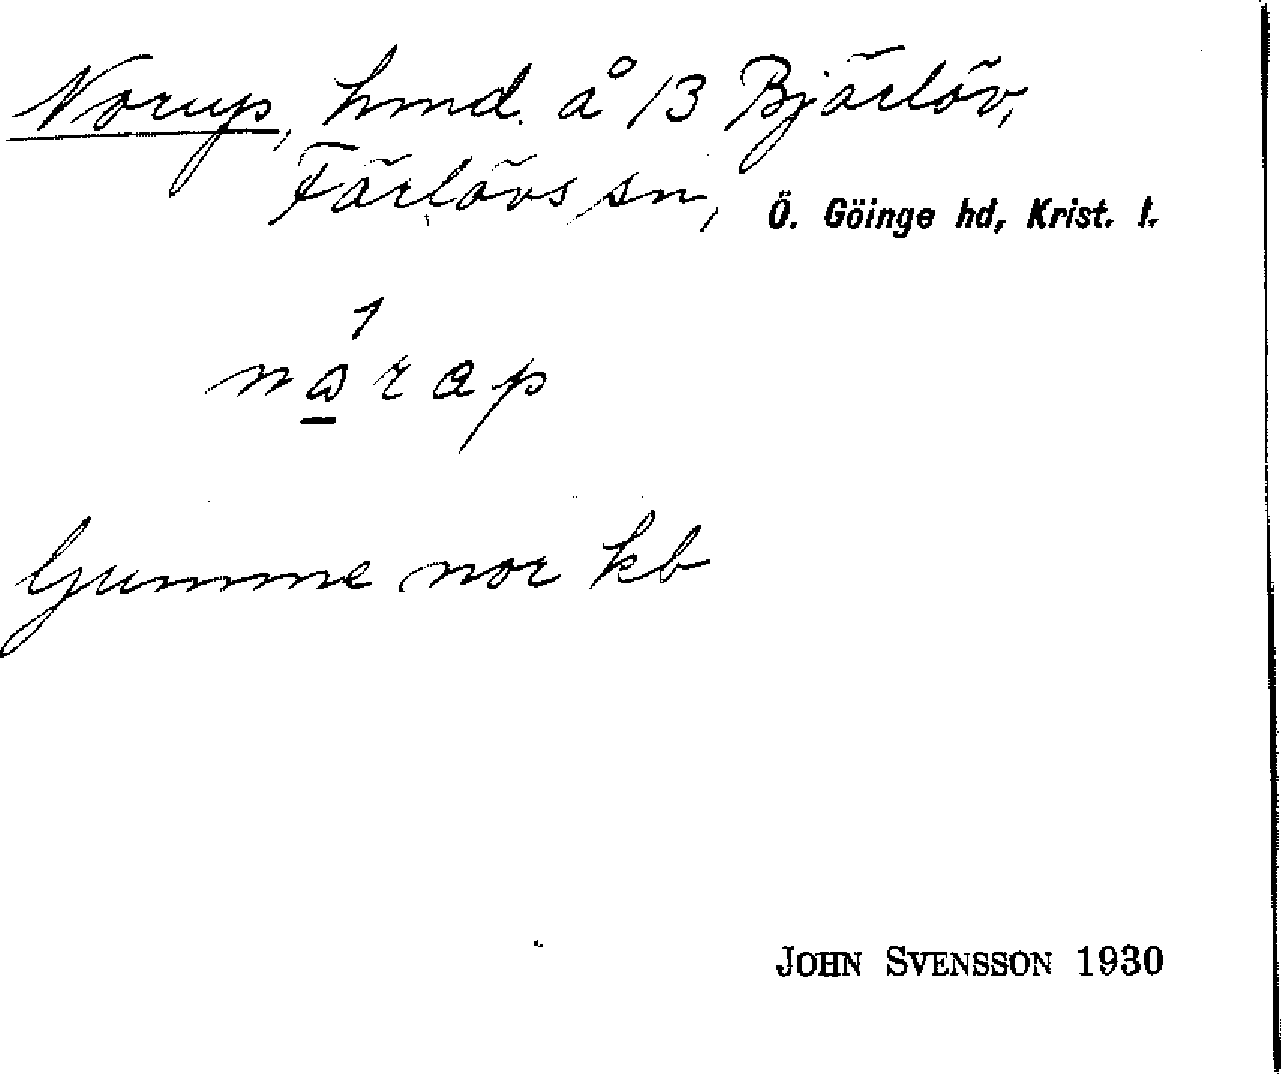 Norup, hmd. å 13 Bjärlöv,
Färlövs sn, Ö. Göinge hd, Krist. l.
1
nårap
Gumme nor kb
JOHN SVENSSON 1930